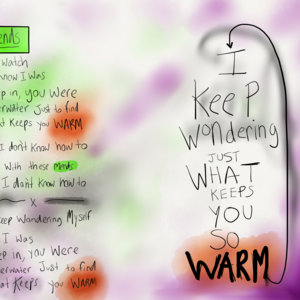 ends
Watch
now I Was
ep in, you Were
erwater Just to find
at Keeps you WARM
I don't Know how to
With these Minds
I don't know how to
x
eep Wandering Myself
I Was
ep in, you Were
erwater Just to find
at Keeps you WARM
I
KeeP
Wondering
JUST
WHAT
KEEPS
YOU
SO
WARM